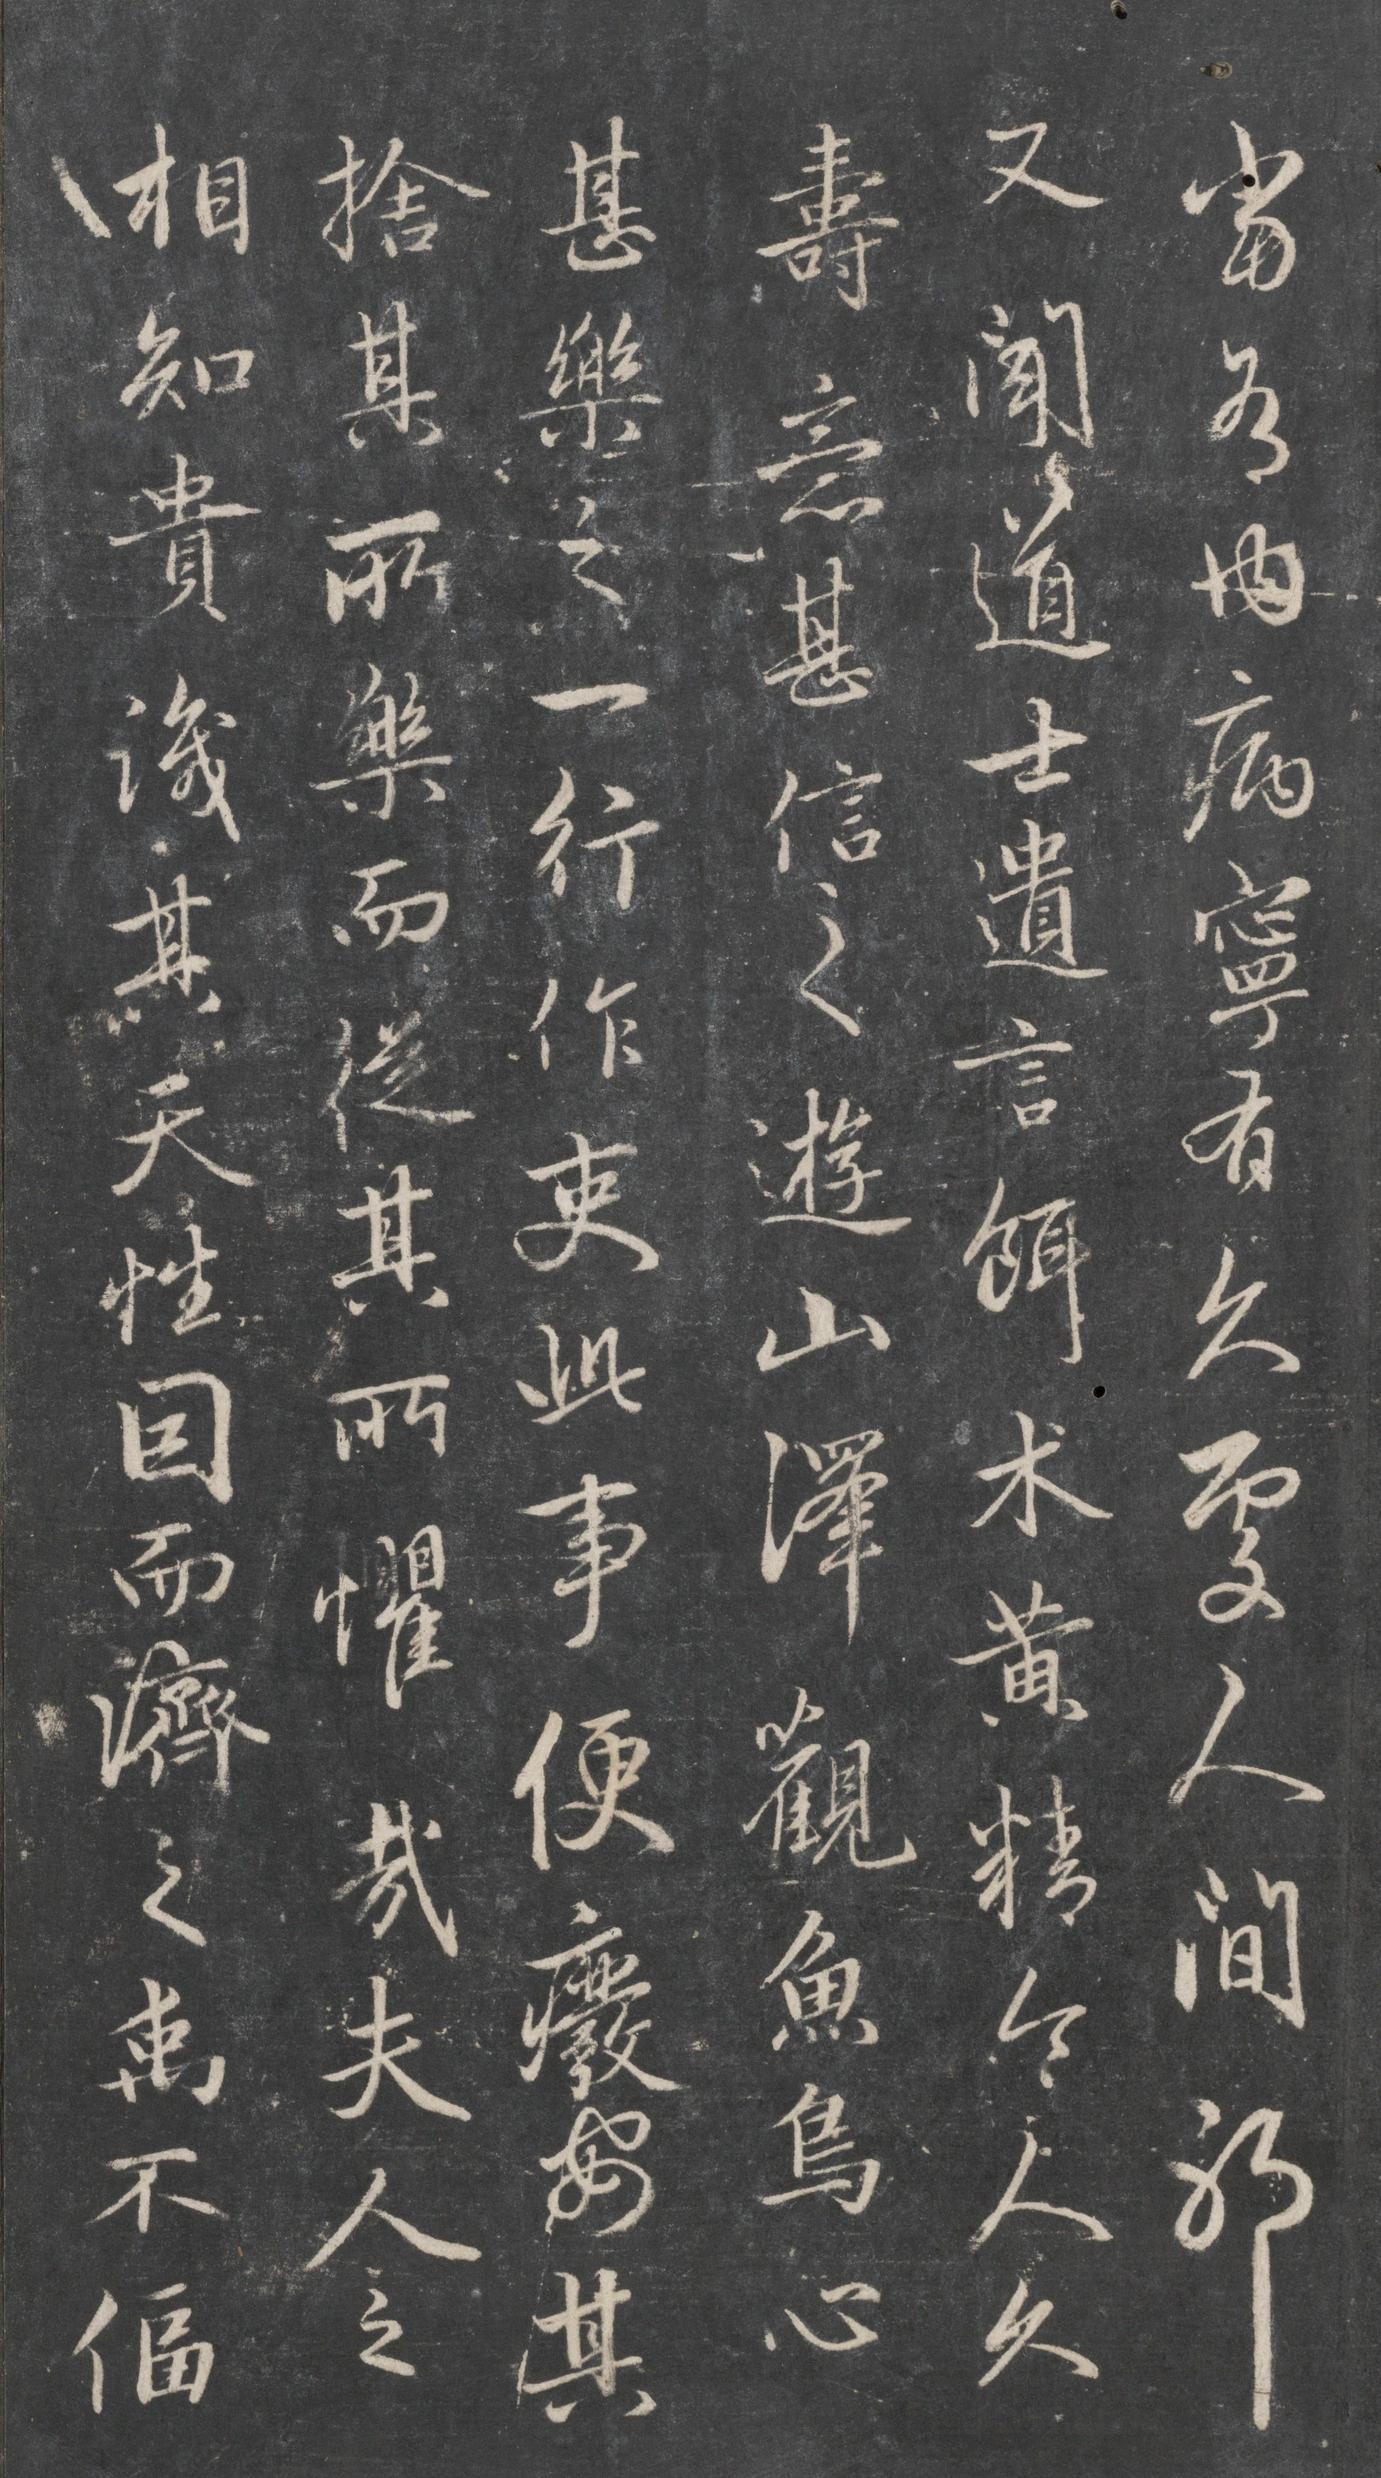 當有内病寧有久處人間邪
又聞道士遺言餌术黄精令人久
壽意甚信之遊山澤觀魚鳥心
甚樂之一行作吏此事便癈安其
捨其所樂而從其所懼哉夫人之
相知貴識其天性因而濟之禹不偪